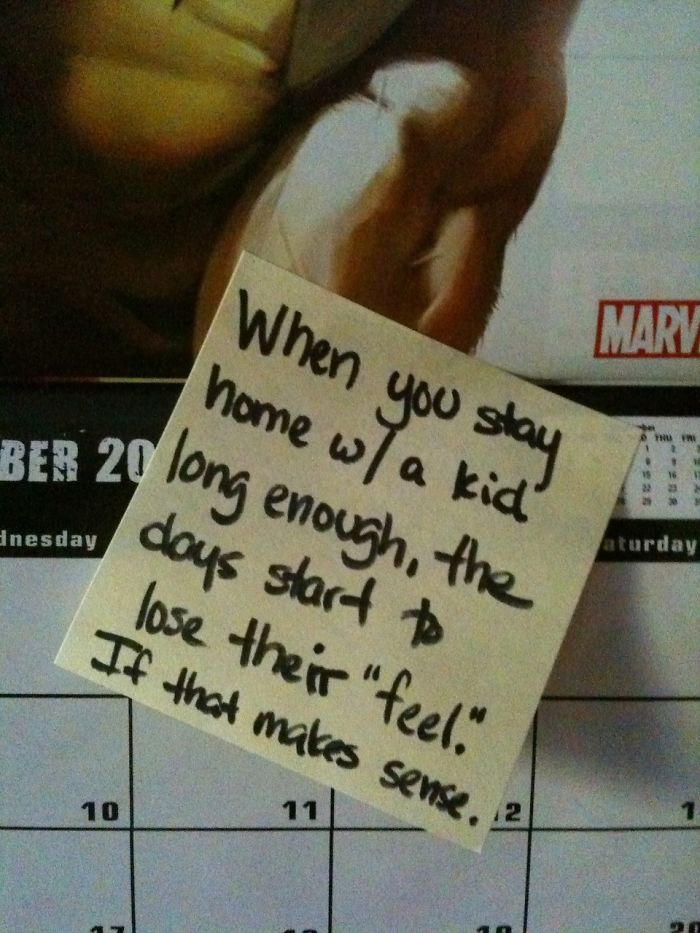 MARV
BER 20
THU FRI
dnesday
aturday
When you stay
home w/ a kid
long enough, the
days start to
lose their "feel."
If that makes sense.
10
11
12
1
17
18
20